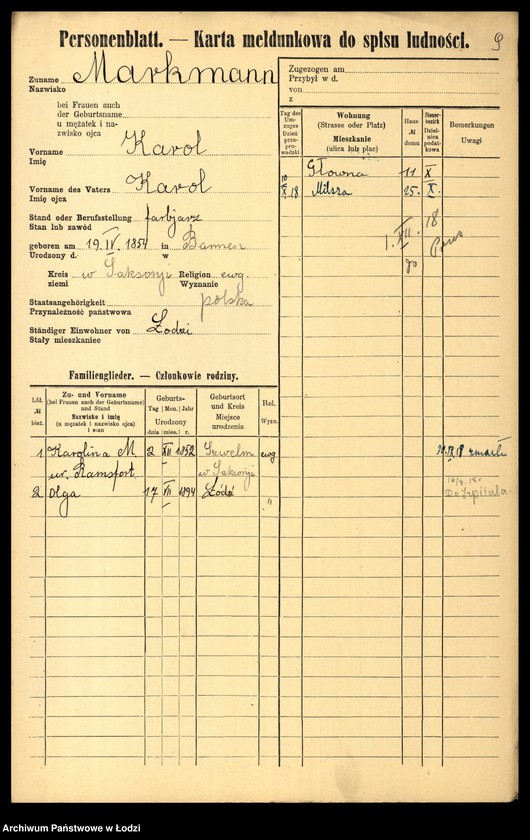 Personenblatt. — Karta meldunkowa do spisu ludności.
9
Zuname Markmann
Nazwisko
bei Frauen auch
der Geburtsname
u mężatek i na-
zwisko ojca
Vorname Karol
Imię
Vorname des Vaters Karol
Imię ojca
Stand oder Berufsstellung farbjarz
Stan lub zawód
geboren am 19 IV. 1854 in Barmen
Urodzony d. w
Kreis w Saksonji Religion ewg.
ziemi Wyznanie
Staatsangehörigkeit polska
Przynależność państwowa
Ständiger Einwohner von Łodzi
Stały mieszkaniec
Zugezogen am
Przybył w d.
von
z
Tag des Um-zuges Dzień prze-prowadzki
Wohnung (Strasse oder Platz) Mieszkanie (ulica lub plac)
Haus-№ domu
Steuer-bezirk Dzielnica podatkowa
Bemerkungen Uwagi
Główna 11 X
10/X 18 Milsza 25. X.
1. XII. 18
Familienglieder. — Członkowie rodziny.
Lfd. № bież.
Zu- und Vorname (bei Frauen auch der Geburtsname) und Stand Nazwisko i imię (u mężatek i nazwisko ojca) i stan
Geburts- Tag Mon. Jahr Urodzony dnia mies. r.
Geburtsort und Kreis Miejsce urodzenia
Rel. Wyzn.
1 Karolina M. 2 XII 1852 Szwelm ewg 18 zmarła
ur. Ramsfort w Saksonji
2 Olga 17 VII 1894 Łódź " Do szpitala.
Archiwum Państwowe w Łodzi